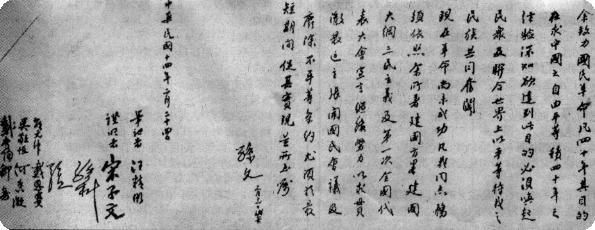 余致力國民革命凡四十年其目的
在求中國之自由平等積四十年之
經驗深知欲達到此目的必須喚起
民眾及聯合世界上以平等待我之
民族共同奮鬥
現在革命尚未成功凡我同志務
須依照余所著建國方略建國
大綱三民主義及第一次全國代
表大會宣言繼續努力以求貫
澈最近主張開國民會議及
廢除不平等條約尤須於最
短期間促其實現是所至囑
孫文
中華民國十四年二月二十四日
筆記者 汪精衛
證明者 宋子文
孫科
戴恩賽
吳敬恆 何香凝
鄒魯